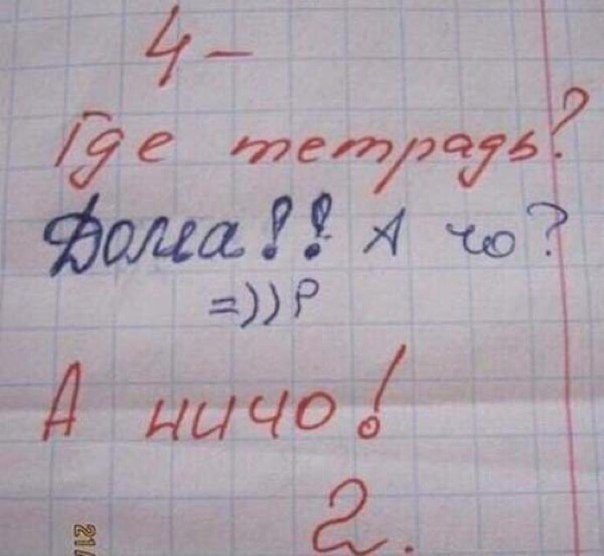 4-
Где тетрадь?
Дома!! А чо?
=))P
А ничо!
2.
21/